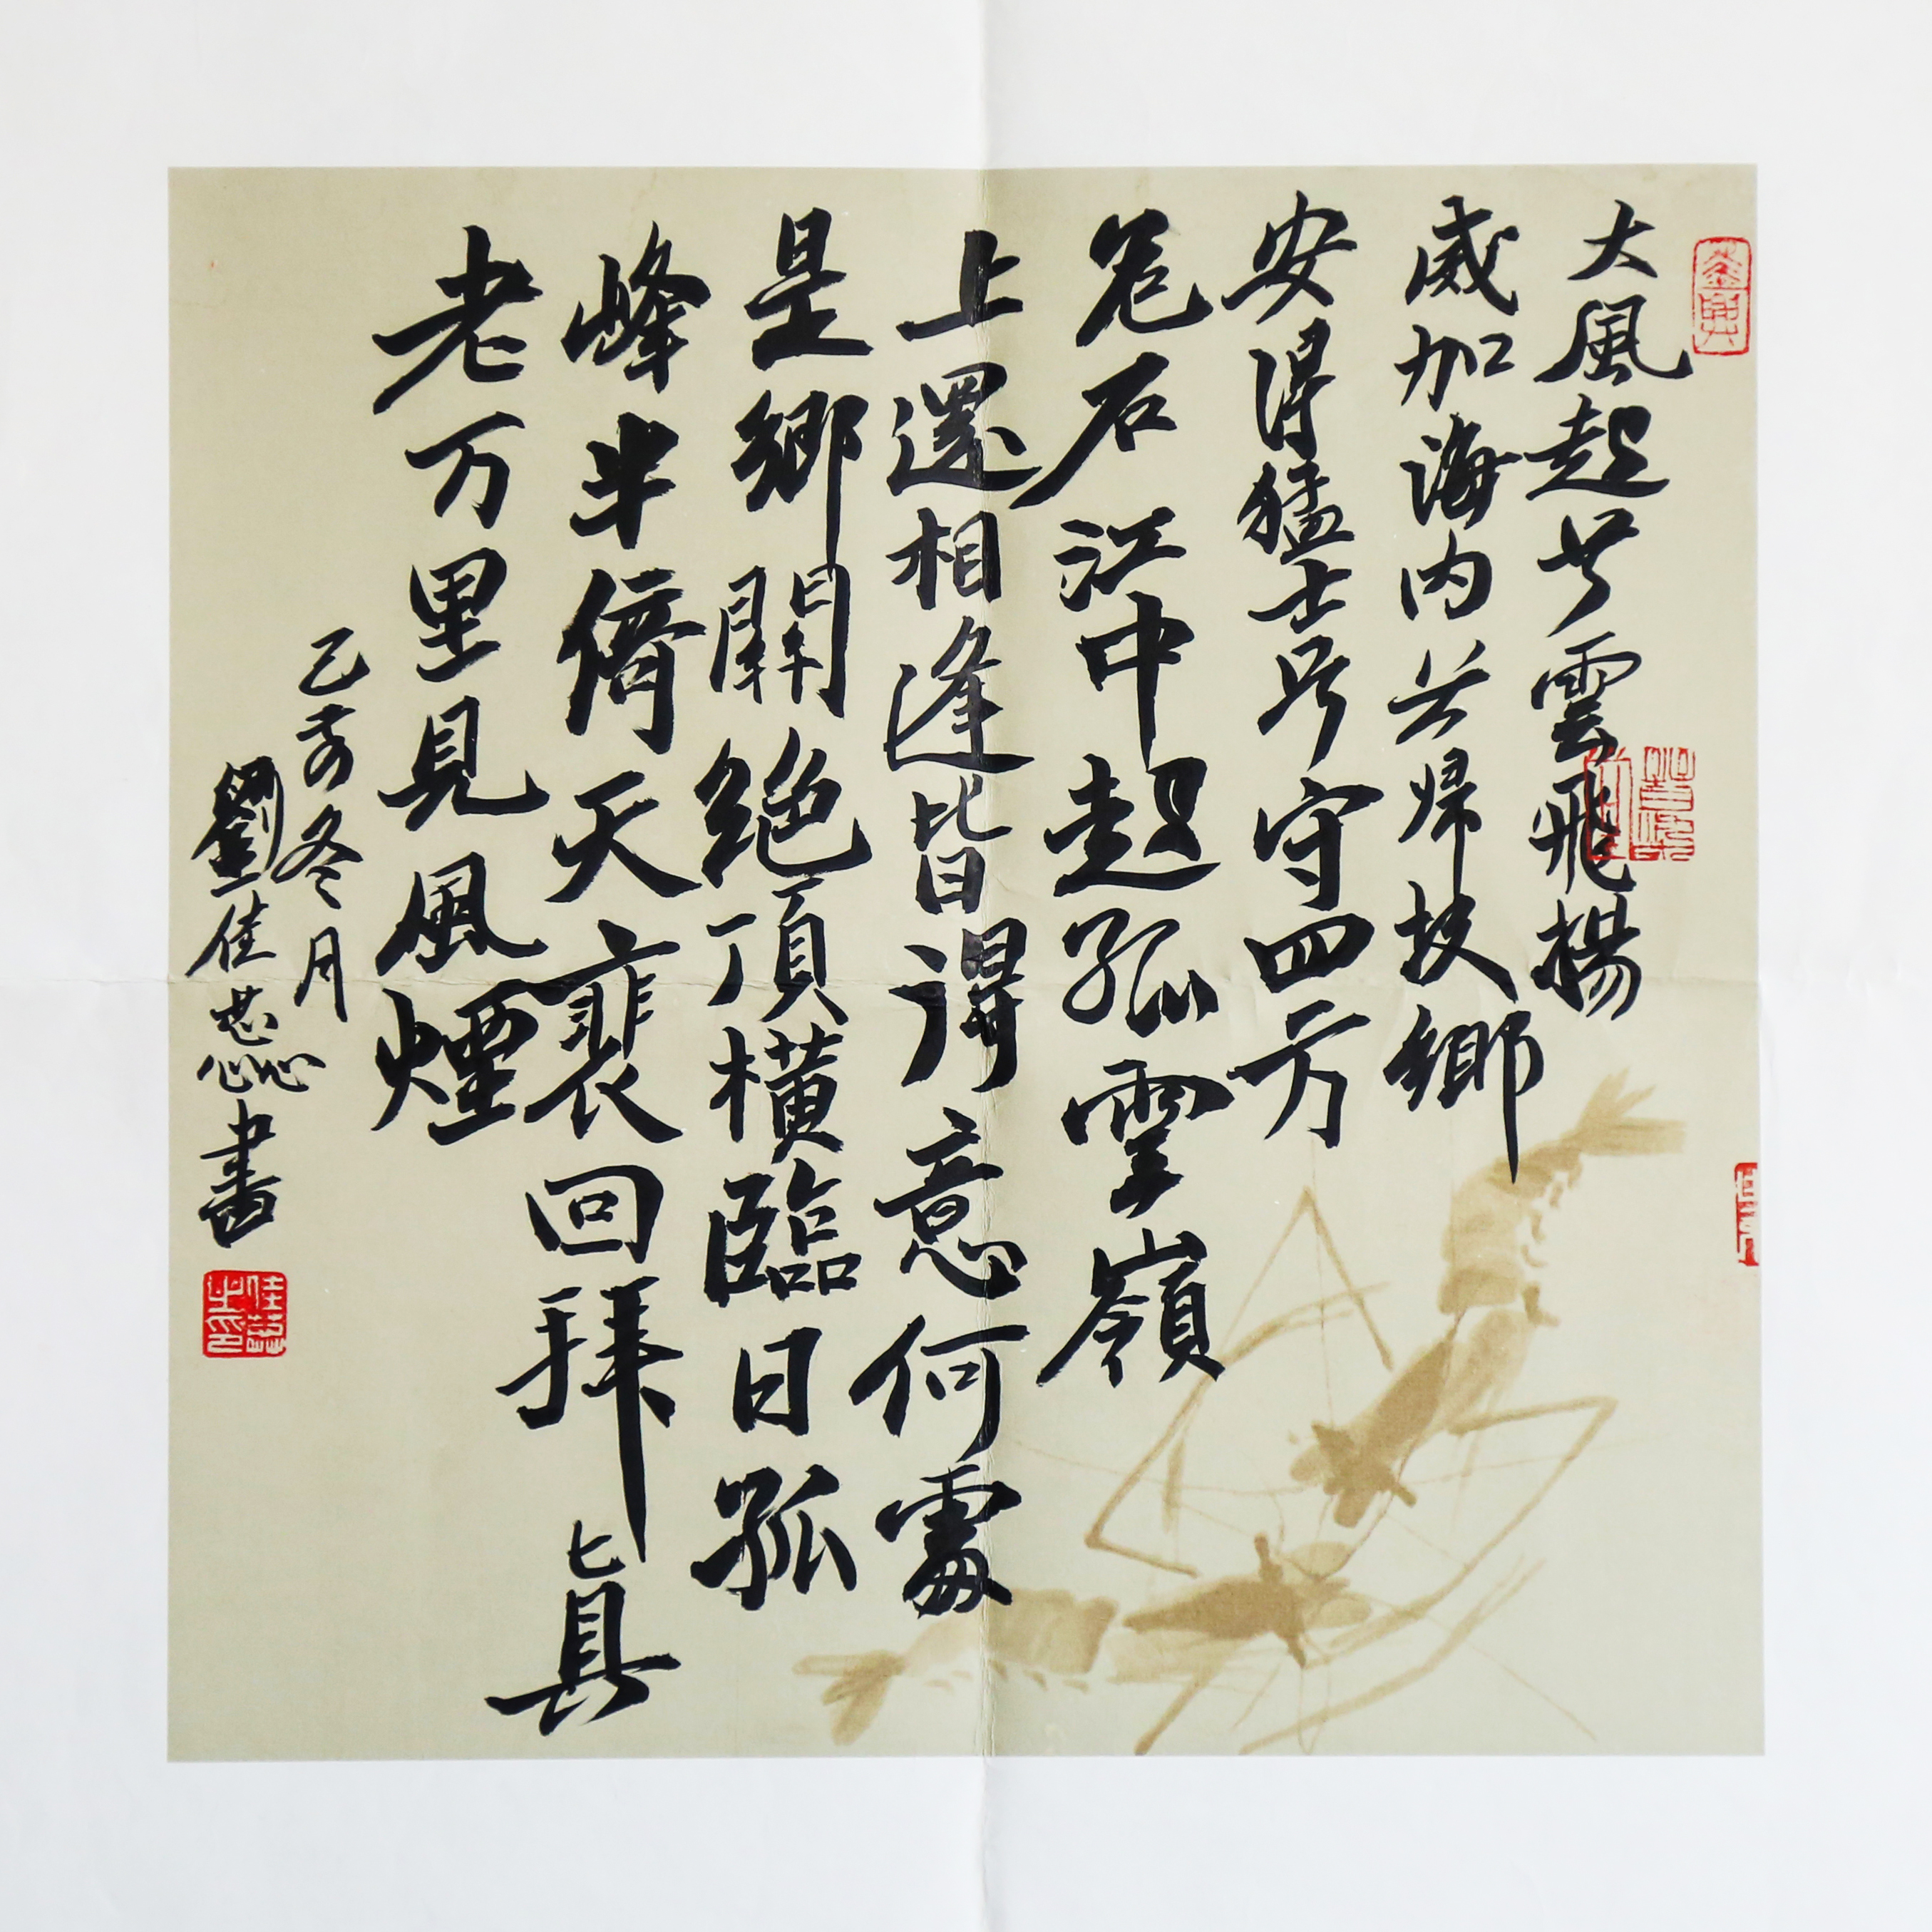 大風起兮雲飛揚
威加海内兮帰故鄉
安得猛士兮守四方
危石江中起孤雲嶺
上還相逢皆得意何處
是鄉關絕頂橫臨日孤
峰半倚天裴回拜真
老万里見風煙
己亥冬月
劉佳蕊書
佳蕊之印